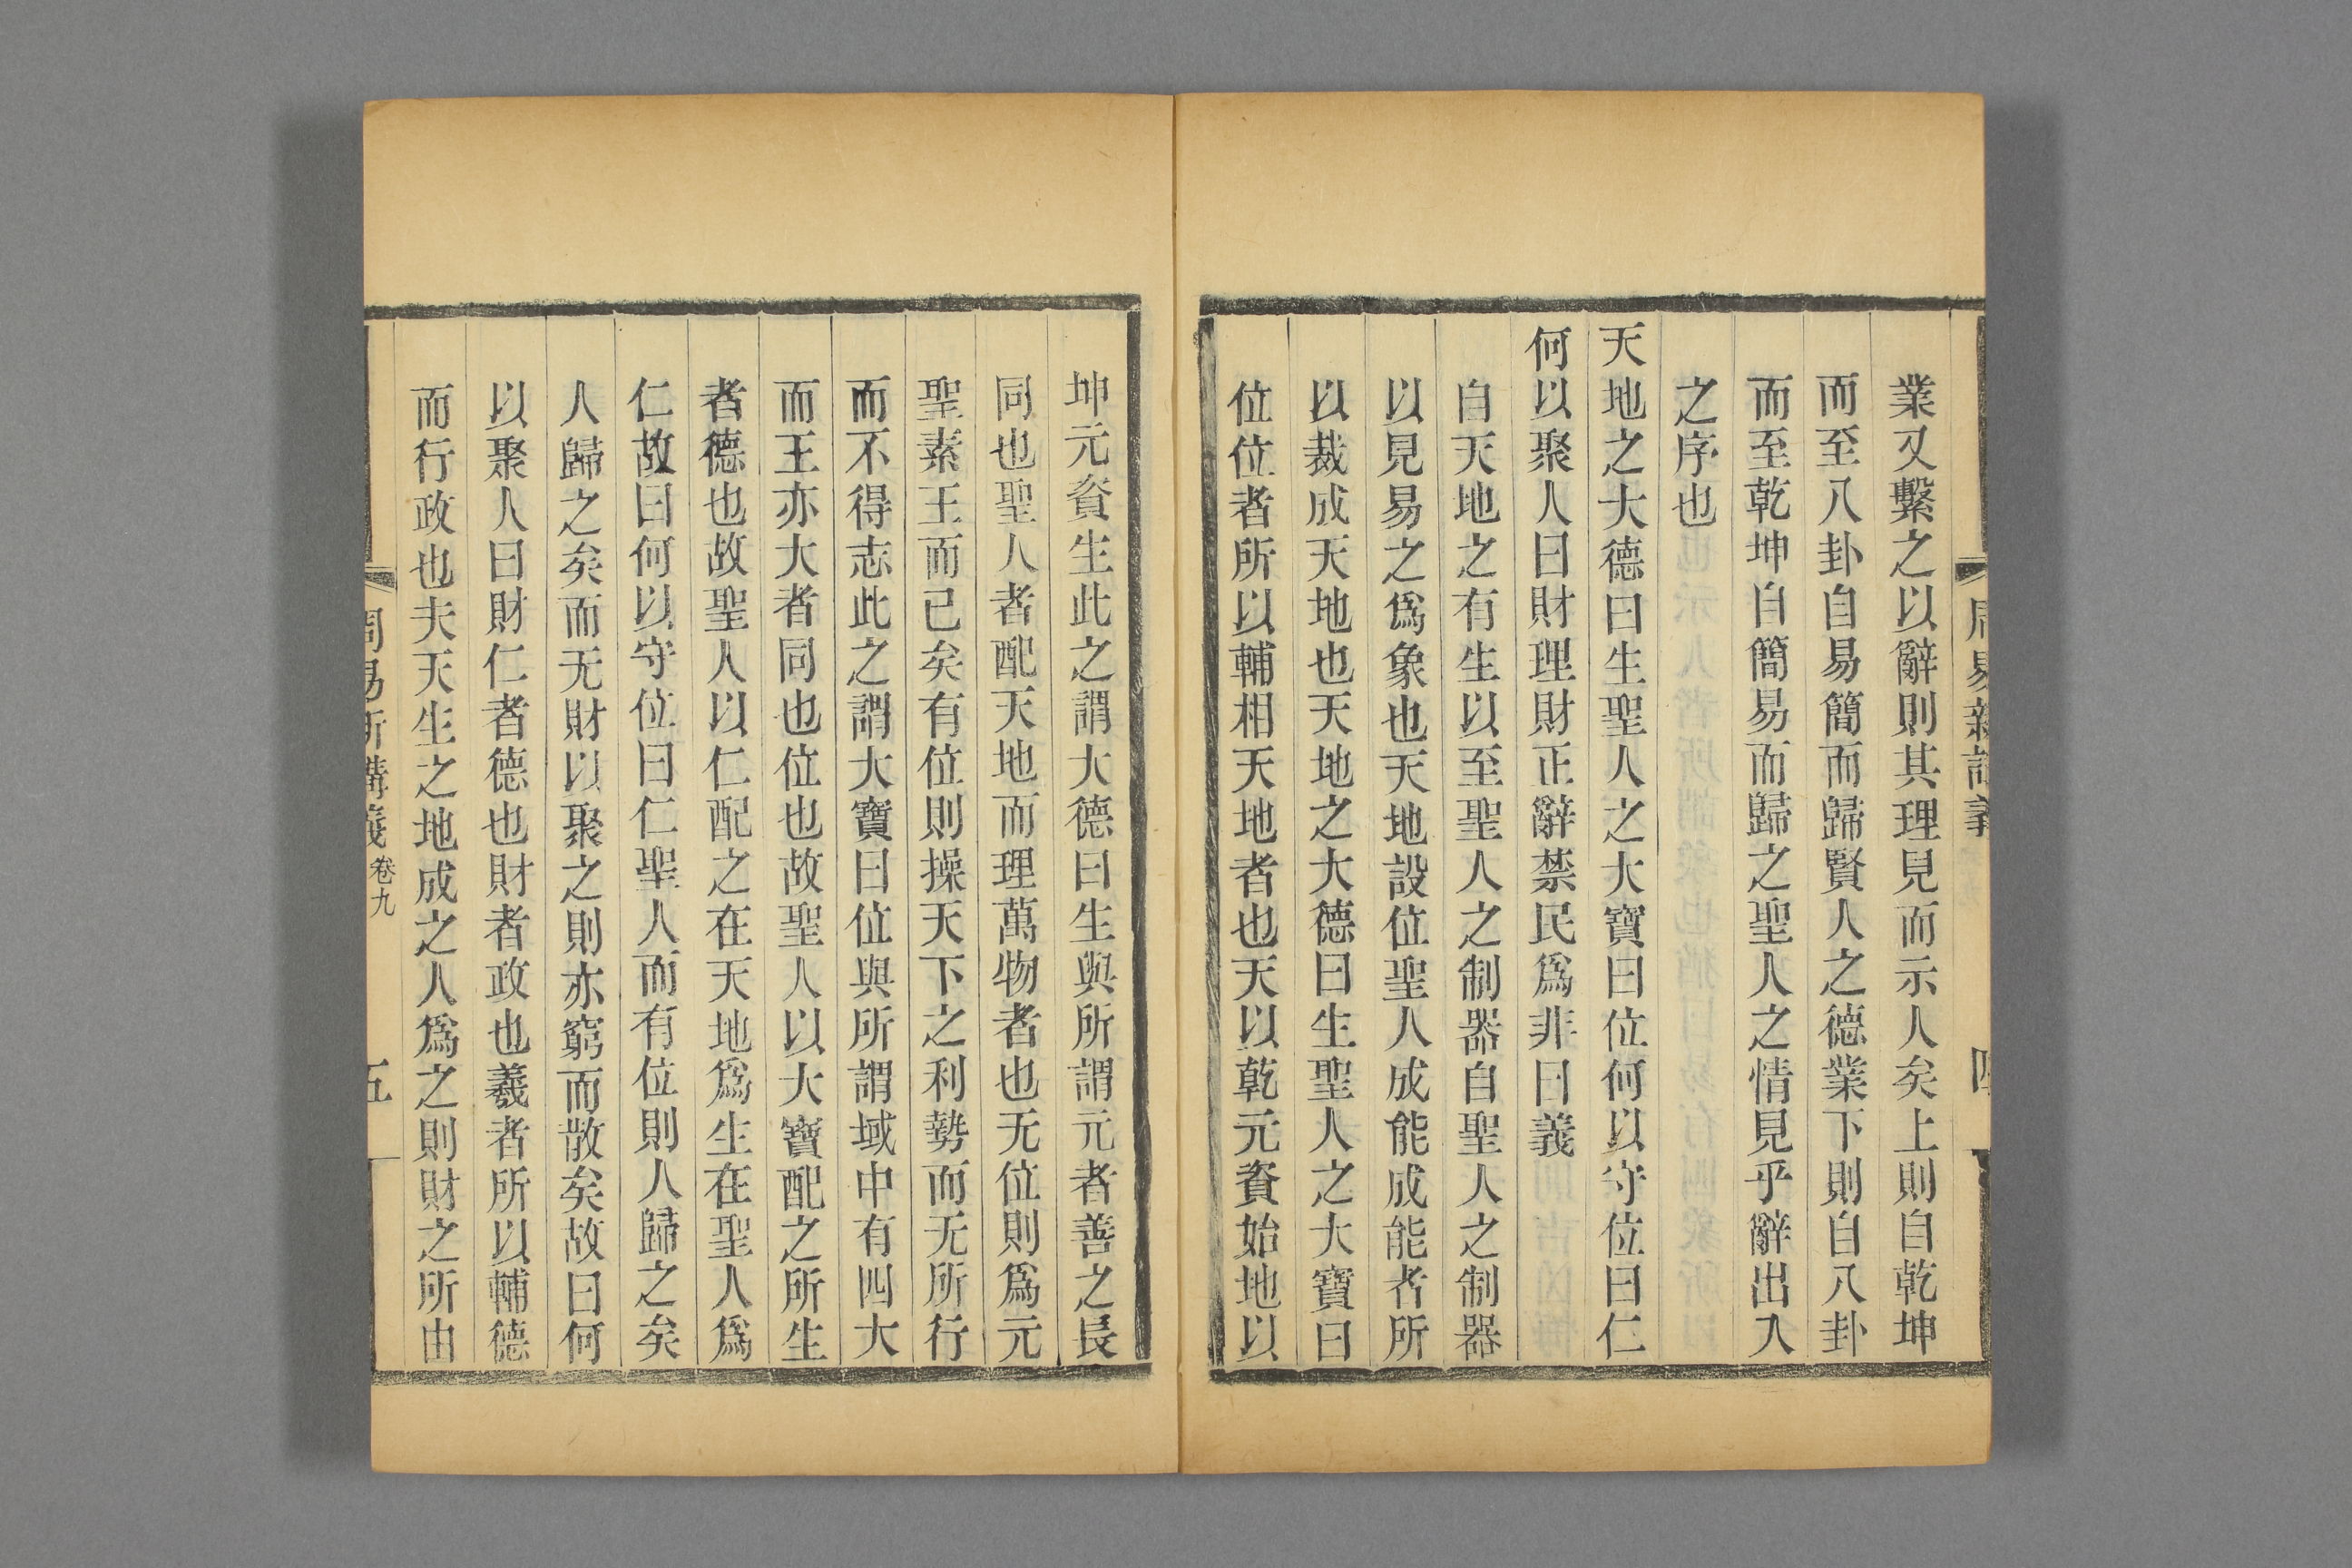 周易新講義
四
業又繫之以辭則其理見而示人矣上則自乾坤
而至八卦自易簡而歸賢人之德業下則自八卦
而至乾坤自簡易而歸之聖人之情見乎辭出入
之序也
天地之大德曰生聖人之大寶曰位何以守位曰仁
何以聚人曰財理財正辭禁民爲非曰義
自天地之有生以至聖人之制器自聖人之制器
以見易之爲象也天地設位聖人成能成能者所
以裁成天地也天地之大德曰生聖人之大寶曰
位位者所以輔相天地者也天以乾元資始地以
坤元資生此之謂大德曰生與所謂元者善之長
同也聖人者配天地而理萬物者也无位則爲元
聖素王而已矣有位則操天下之利勢而无所行
而不得志此之謂大寶曰位與所謂域中有四大
而王亦大者同也位也故聖人以大寶配之所生
者德也故聖人以仁配之在天地爲生在聖人爲
仁故曰何以守位曰仁聖人而有位則人歸之矣
人歸之矣而无財以聚之則亦窮而散矣故曰何
以聚人曰財仁者德也財者政也義者所以輔德
而行政也夫天生之地成之人爲之則財之所由
周易新講義卷九
五